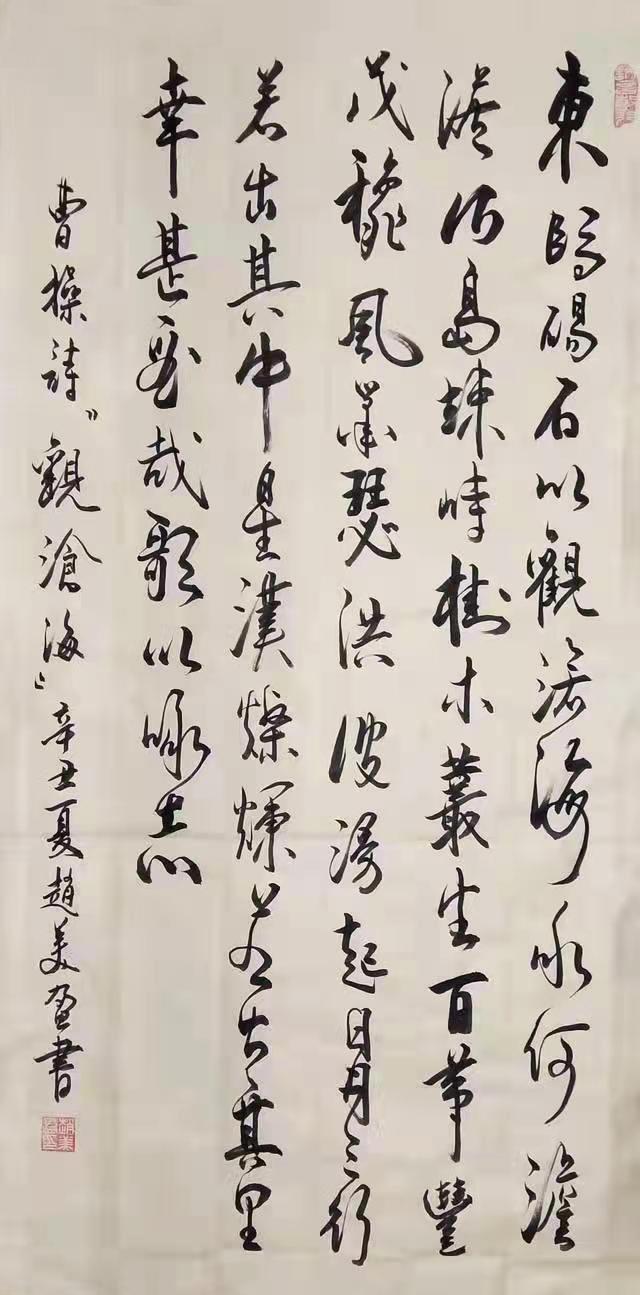 東臨碣石以觀滄海水何澹
澹山島竦峙樹木叢生百草豐
茂秋風蕭瑟洪波湧起日月之行
若出其中星漢燦爛若出其里
幸甚至哉歌以詠志
曹操詩“觀滄海”辛丑夏趙美盈書